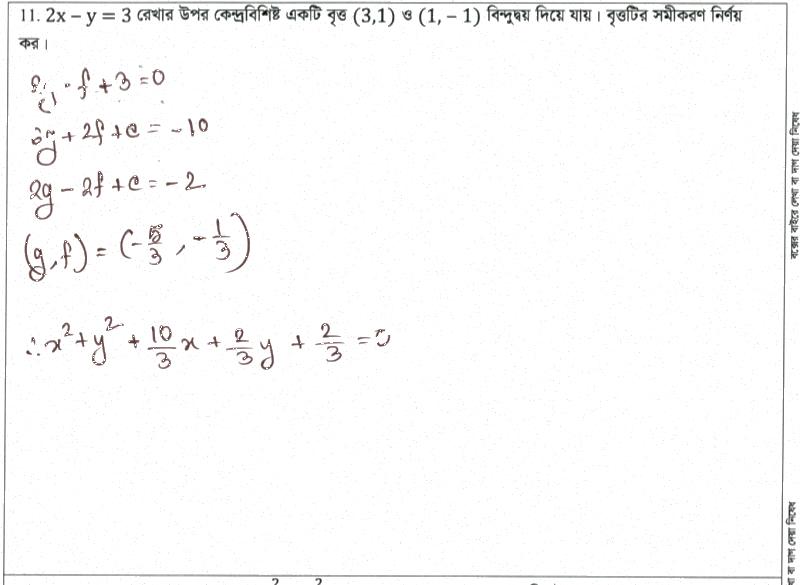 11. 2x – y = 3 রেখার উপর কেন্দ্রবিশিষ্ট একটি বৃত্ত (3,1) ও (1, – 1) বিন্দুদ্বয় দিয়ে যায়। বৃত্তটির সমীকরণ নির্ণয়
কর।
- f + 3 = 0
6g + 2f + c = -10
2g - 2f + c = -2
(g, f) = (-5/3, -1/3)
∴ x² + y² + 10/3 x + 2/3 y + 2/3 = 0
বক্সের বাইরে লেখা বা দাগ দেয়া নিষেধ
বা দাগ দেয়া নিষেধ